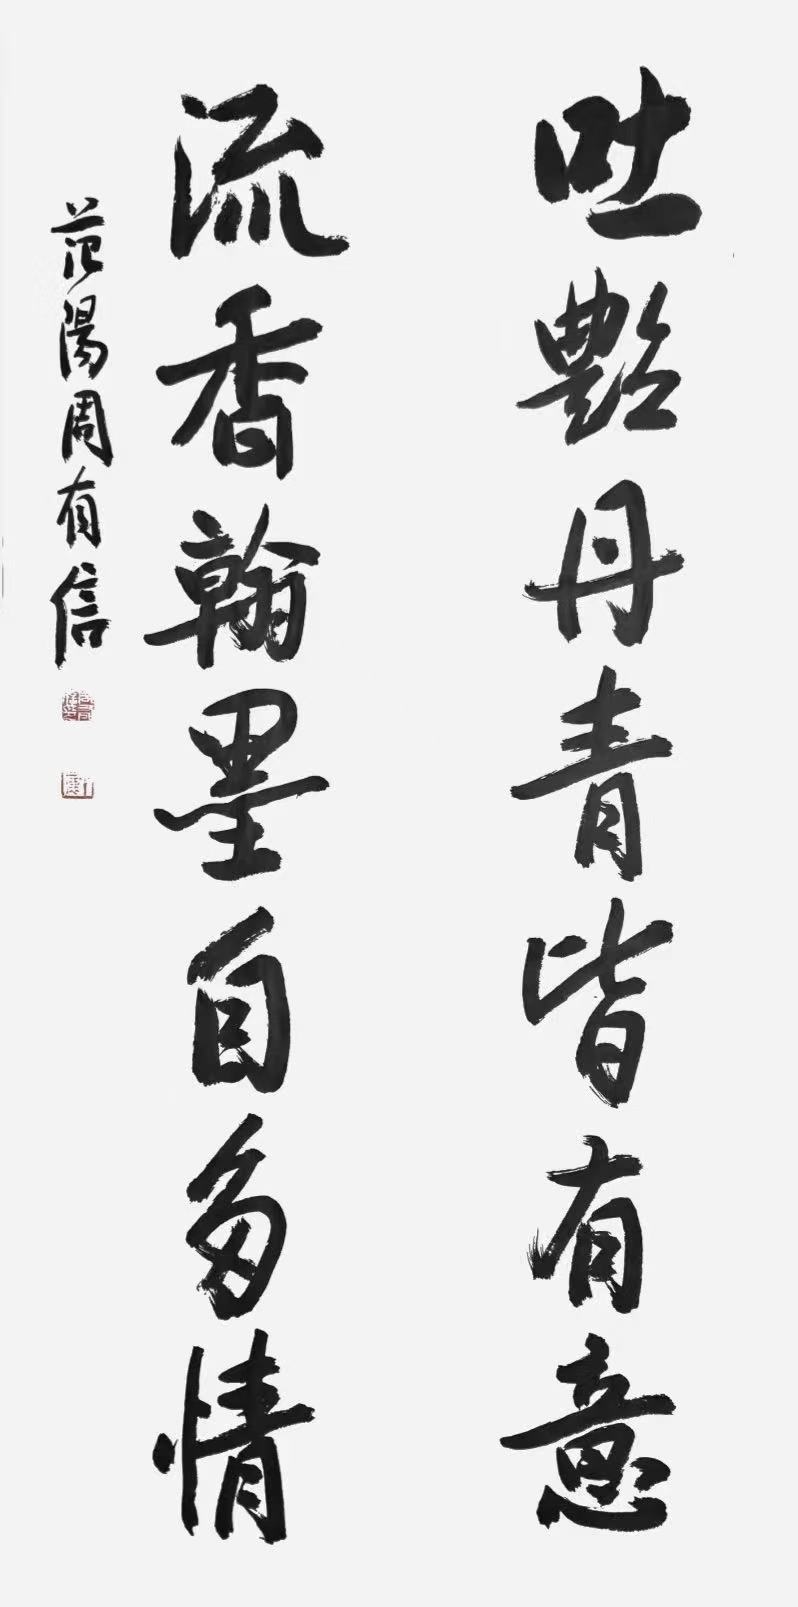 吐艷丹青皆有意
流香翰墨自多情
范陽周有信